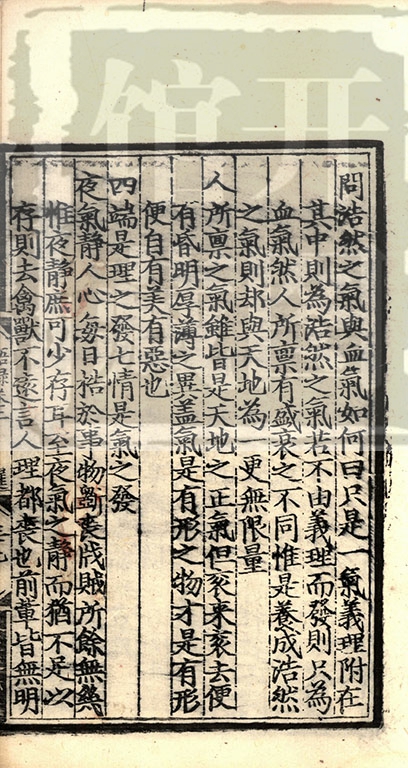 問浩然之氣與血氣如何曰只是一氣義理附在
其中則為浩然之氣若不由義理而發則只為
血氣然人所禀有盛衰之不同惟是養成浩然
之氣則却與天地為一更無限量
人所禀之氣雖皆是天地之正氣但衮来衮去便
有昏明厚薄之異盖氣是有形之物才是有形
便自有美有惡也
四端是理之發七情是氣之發
夜氣静人心每日梏於事物斵喪戕賊所餘無幾
惟夜静庶可少存耳至夜氣之静而猶不足以
存則去禽獸不逺言人理都喪也前軰皆無明